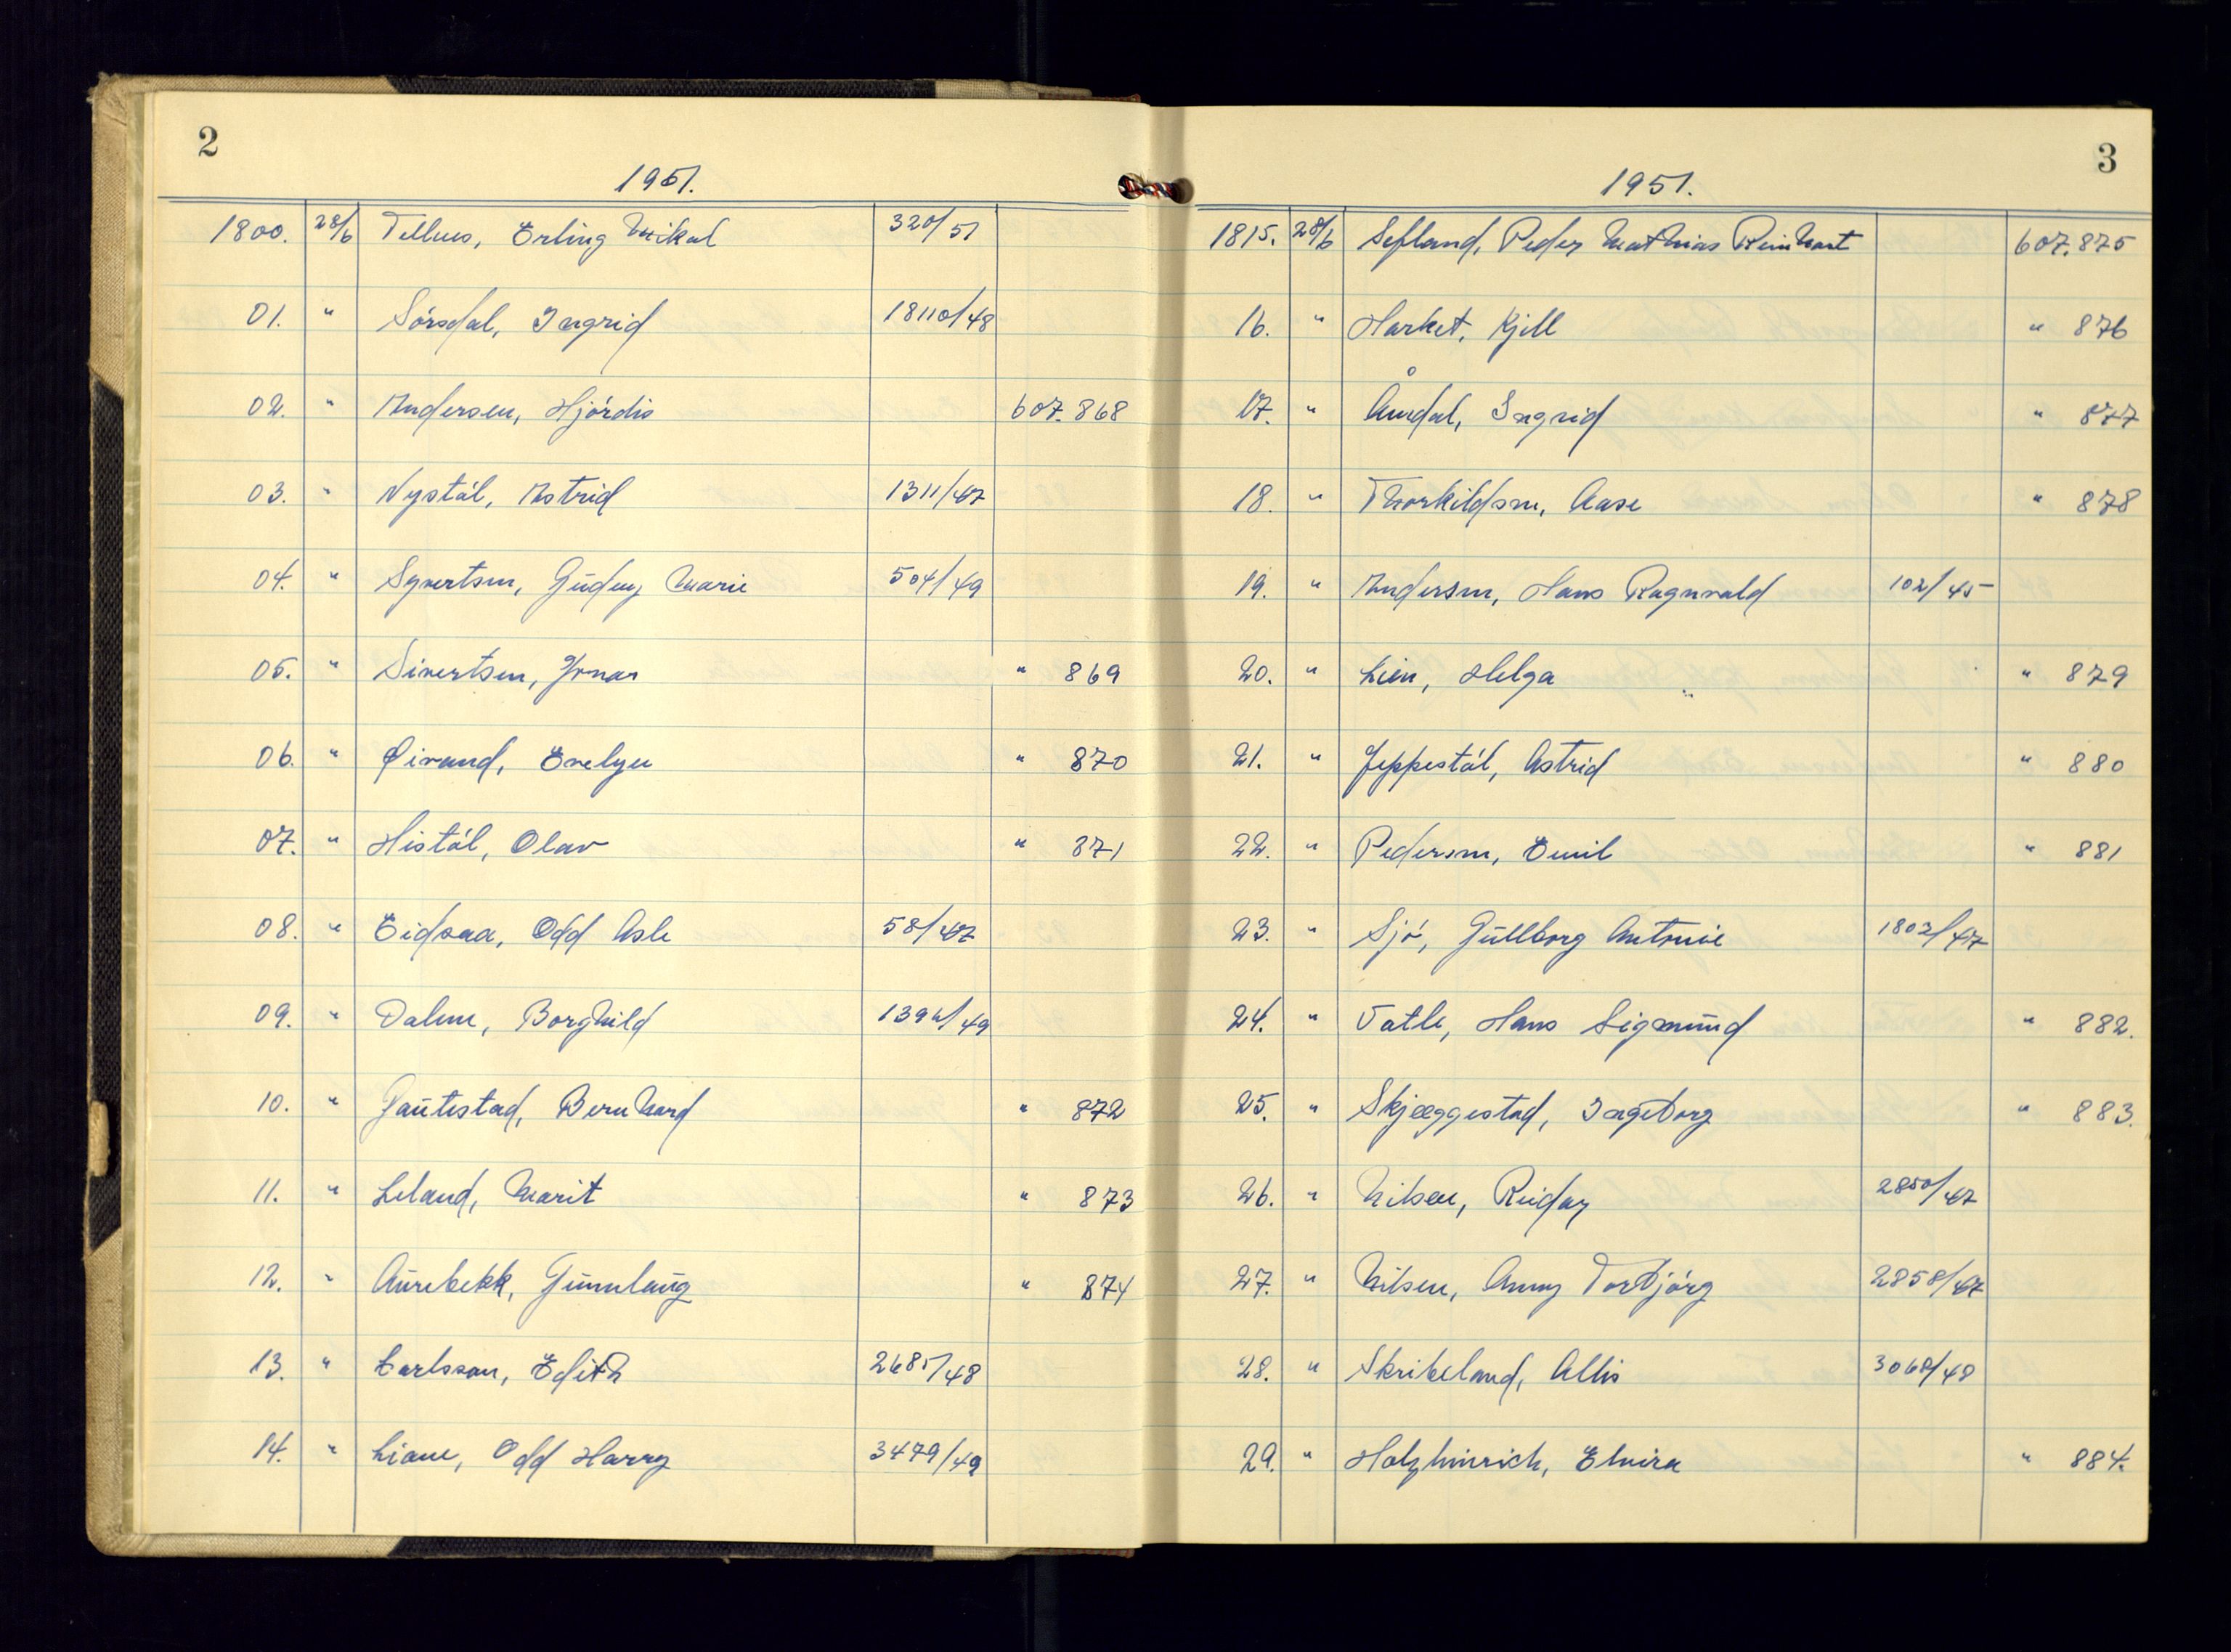 2
1951.
1800. 28/6 Tellnes, Erling Mikal 320/51
01. " Sørsdal, Ingrid 18110/48
02. " Andersen, Hjørdis 607.868
03. " Nystøl, Astrid 1311/47
04. " Syvertsen, Gudny Marie 504/49
05. " Sivertsen, Jonas " 869
06. " Øivand, Evelyn " 870
07. " Histøl, Olav " 871
08. " Eidsaa, Odd Asle 58/47
09. " Dalene, Borghild /49
10. " Gautestad, Bernhard " 872
11. " Leland, Marit " 873
12. " Aurebekk, Gunnlaug " 874
13. " Carlsson, Edith 2685/48
14. " Liane, Odd Harry 3479/49
3
1951.
1815. 28/6 Sefland, Peder Mathias Reinhart 607.875
16. " Harket, Kjell " 876
17. " Åmdal, Ingrid " 877
18. " Thorkildsen, Aase " 878
19. " Andersen, Hans Ragnvald 102/45
20. " Lien, Helga " 879
21. " Jeppestøl, Astrid " 880
22. " Pedersen, Emil " 881
23. " Sjø, Gullborg Antonie 1802/47
24. " Tatle, Hans Sigmund " 882.
25. " Skjeggestad, Ingeborg " 883.
26. " Nilsen, Reidar 2850/47
27. " Nilsen, Anny Torbjørg 2858/47
28. " Skribeland, Allis 3068/48
29. " Holzhinrich, Elvira " 884.